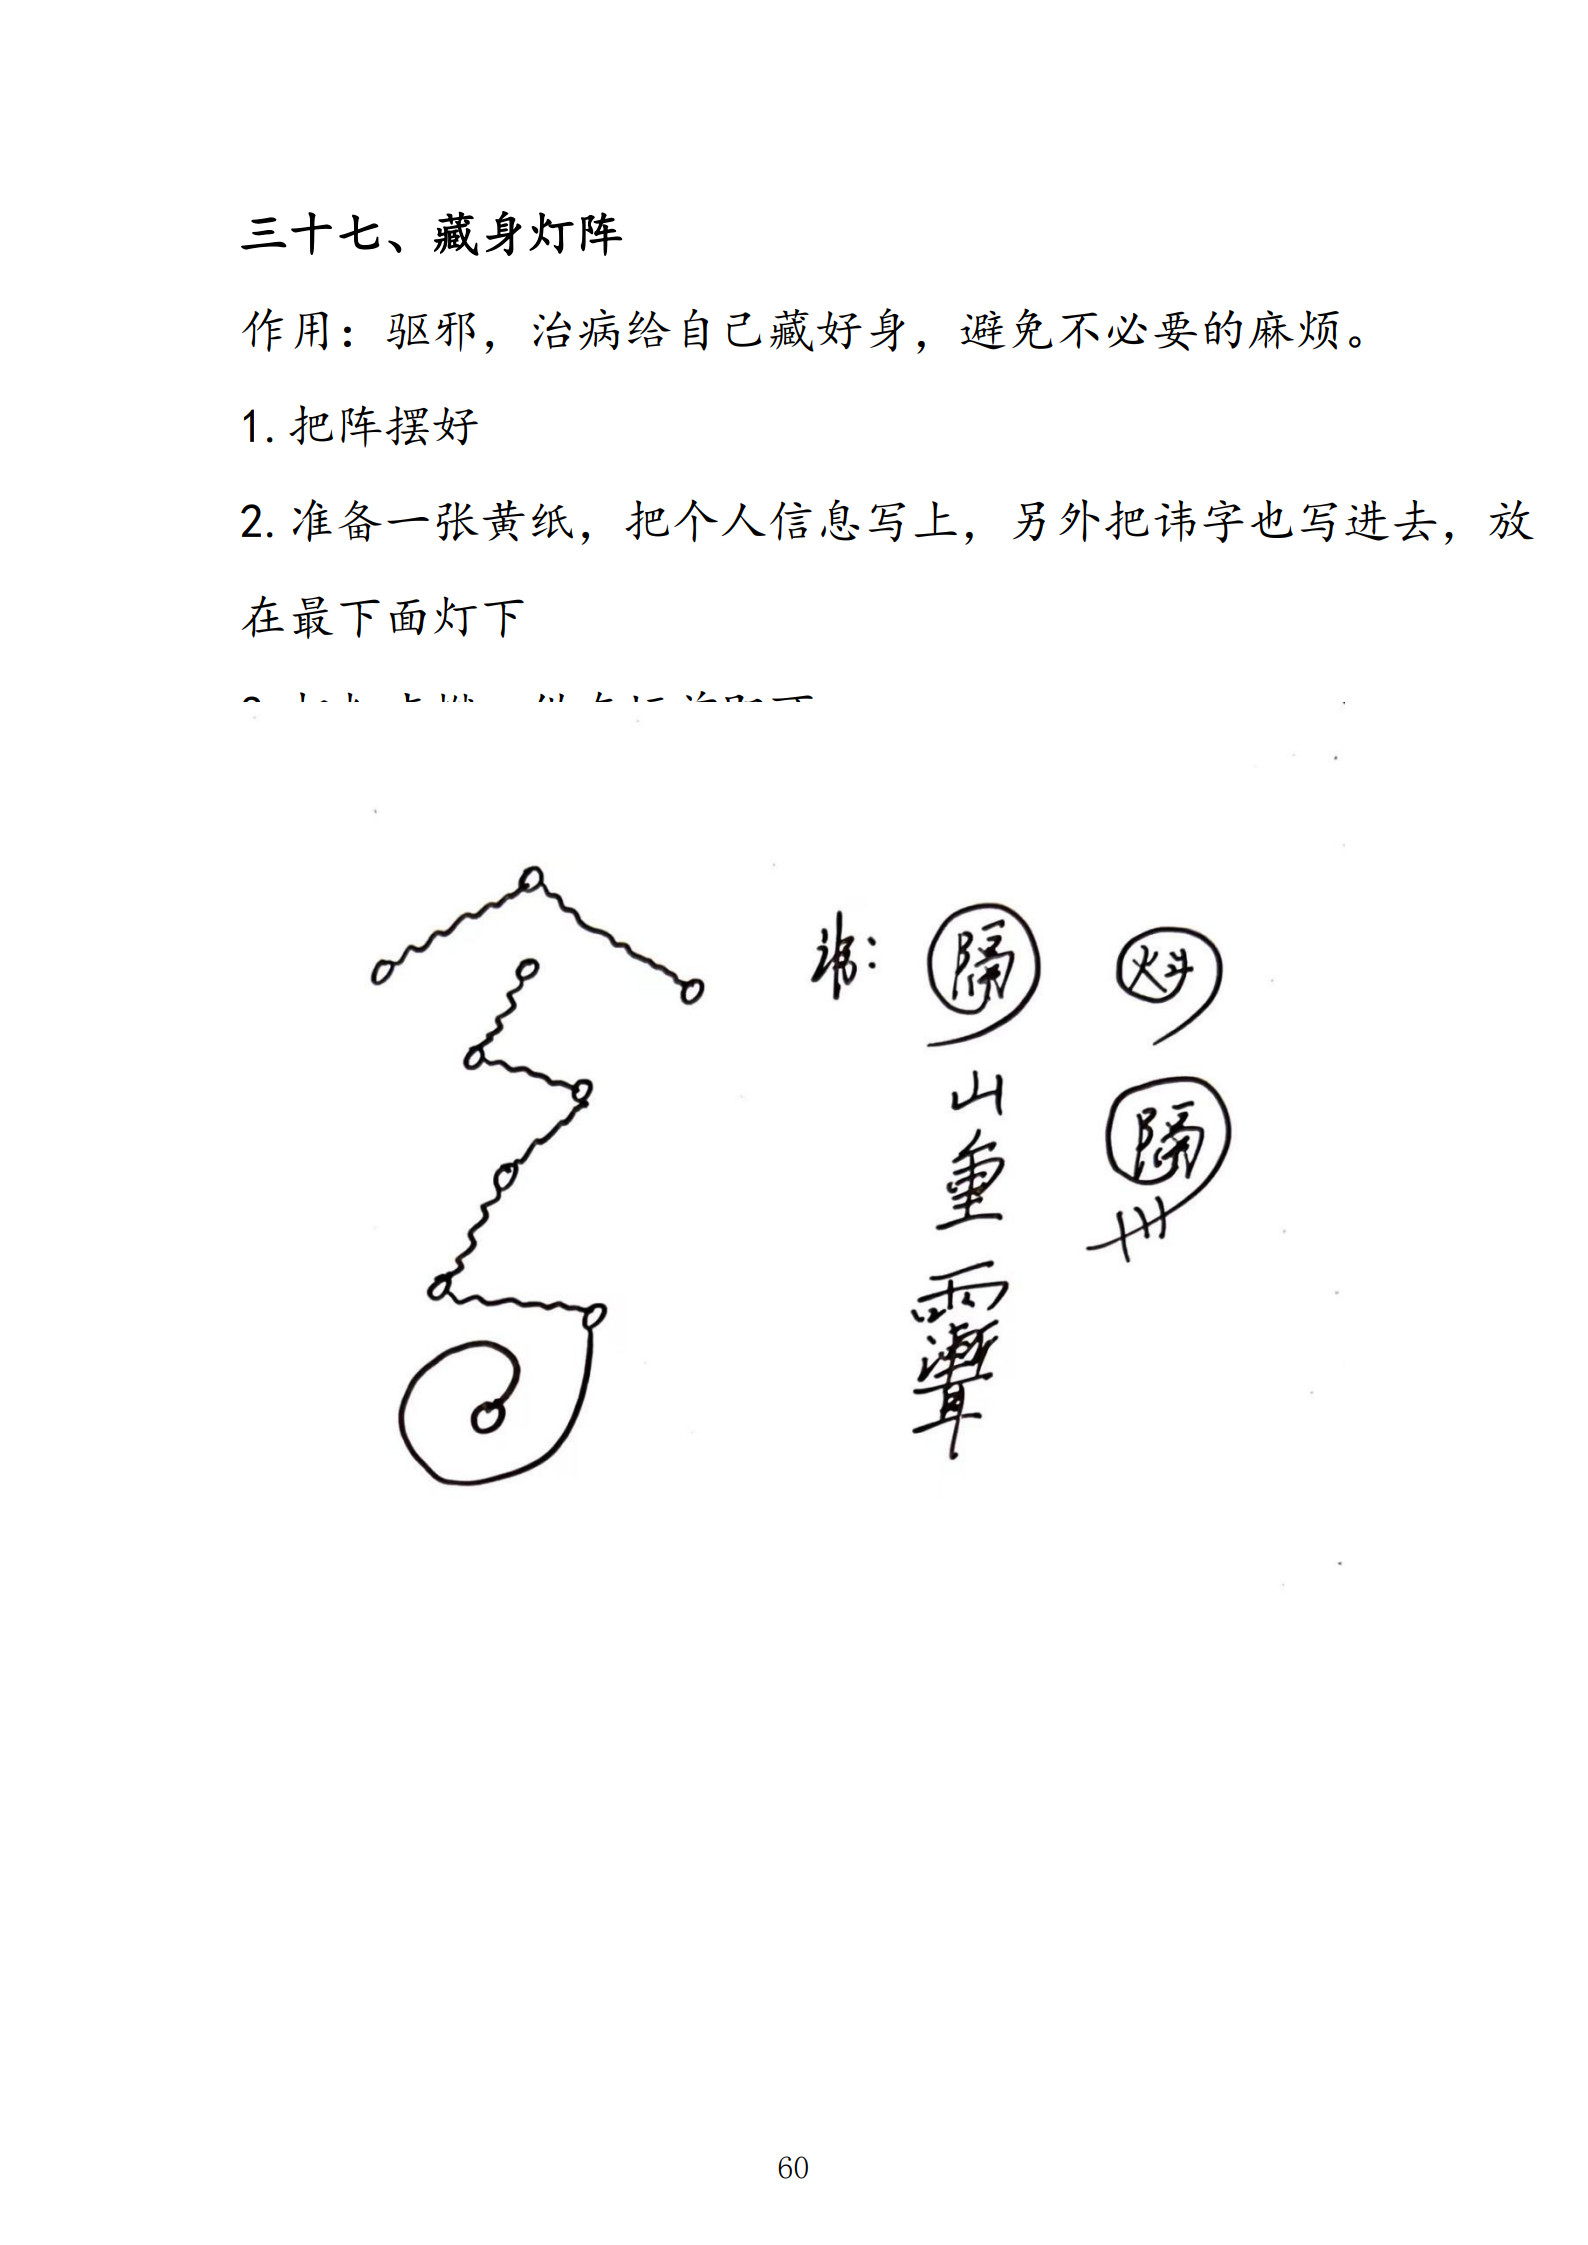 三十七、藏身灯阵
作用：驱邪，治病给自己藏好身，避免不必要的麻烦。
1.把阵摆好
2.准备一张黄纸，把个人信息写上，另外把讳字也写进去，放
在最下面灯下
讳：
隔
山
重
隔
60